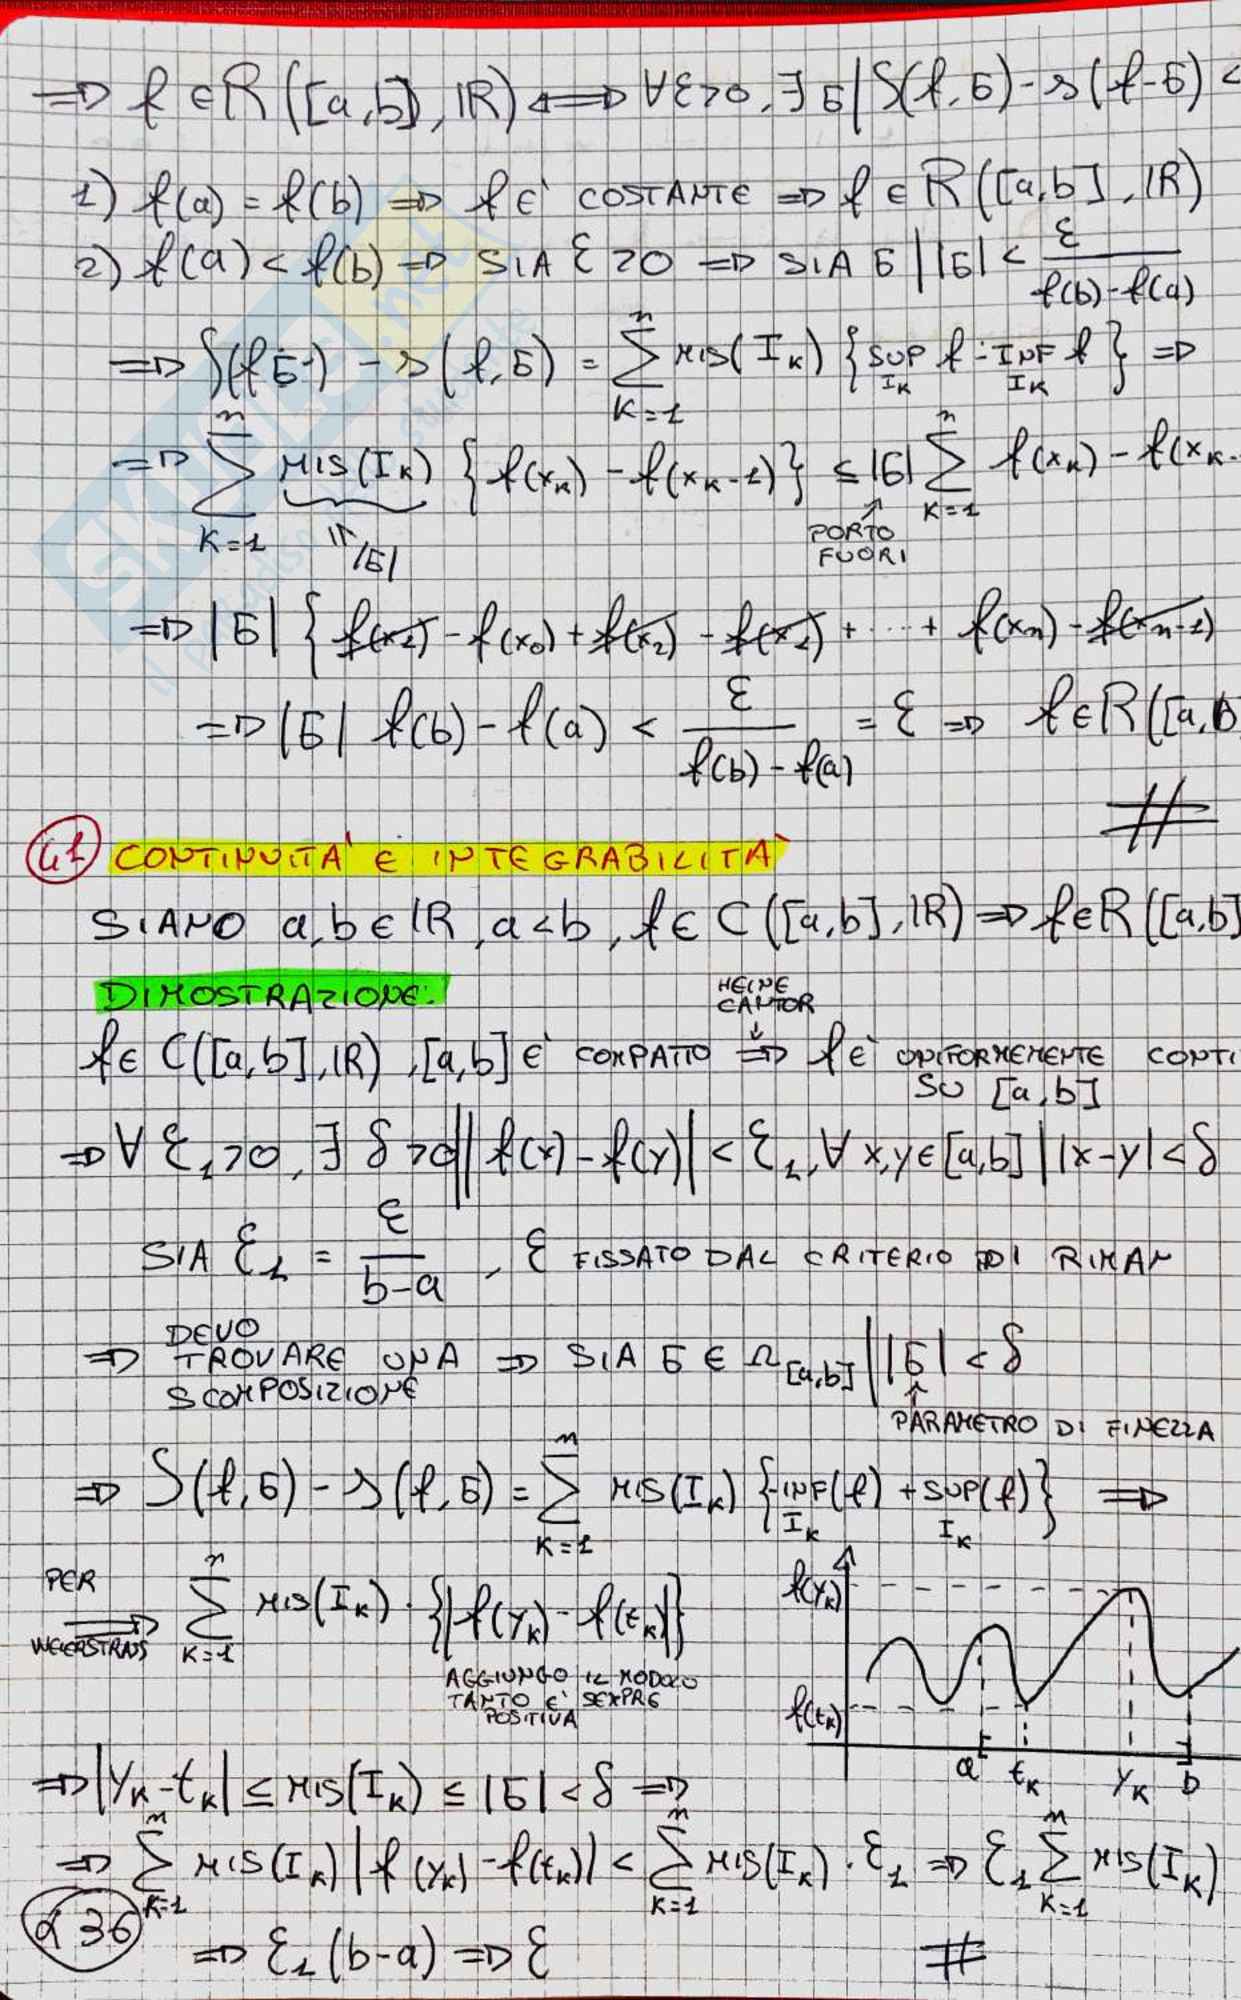 ⇒ f ∈ R([a,b], IR) ⇔ ∀ε>0, ∃ б | S(f,б) - s(f-б) <
1) f(a) = f(b) ⇒ f E' COSTANTE ⇒ f ∈ R([a,b], IR)
2) f(a) < f(b) ⇒ SIA ε>0 ⇒ SIA б | |б| < ε / f(b)-f(a)
⇒ S(f,б) - s(f,б) = Σ_{K=1}^{n} MIS(I_K) { SUP_{I_K} f - INF_{I_K} f } ⇒
⇒ Σ_{K=1}^{n} MIS(I_K) { f(x_K) - f(x_{K-1}) } ≤ |б| Σ_{K=1}^{n} f(x_K) - f(x_{K-
|б|
PORTO FUORI
⇒ |б| { f(x_1) - f(x_0) + f(x_2) - f(x_1) + .... + f(x_n) - f(x_{n-1})
⇒ |б| f(b) - f(a) < ε / f(b)-f(a) = ε ⇒ f ∈ R([a,b
#
41 CONTINUITA' E INTEGRABILITA'
SIANO a,b ∈ IR, a<b, f ∈ C([a,b], IR) ⇒ f ∈ R([a,b]
DIMOSTRAZIONE:
HEINE CANTOR
f ∈ C([a,b], IR), [a,b] E' COMPATTO ⇒ f E' UNIFORMEMENTE CONTI
SU [a,b]
⇒ ∀ ε_1>0, ∃ δ>0 || f(x) - f(y)| < ε_1, ∀ x,y ∈ [a,b] | |x-y| < δ
SIA ε_1 = ε / b-a, ε FISSATO DAL CRITERIO DI RIMAN
⇒ DEVO TROVARE UNA SCOMPOSIZIONE ⇒ SIA б ∈ Ω_{[a,b]} | |б| < δ
PARAMETRO DI FINEZZA
⇒ S(f,б) - s(f,б) = Σ_{K=1}^{n} MIS(I_K) { -INF_{I_K}(f) + SUP_{I_K}(f) } ⇒
PER WEIERSTRASS ⇒ Σ_{K=1}^{n} MIS(I_K) · {|f(y_K) - f(t_K)|}
AGGIUNGO IL MODULO
TANTO E' SEMPRE
POSITIVA
f(y_K)
f(t_K)
a t_K y_K b
⇒ |y_K - t_K| ≤ MIS(I_K) ≤ |б| < δ ⇒
⇒ Σ_{K=1}^{n} MIS(I_K) |f(y_K) - f(t_K)| < Σ_{K=1}^{n} MIS(I_K) · ε_1 ⇒ ε_1 Σ_{K=1}^{n} MIS(I_K)
⇒ ε_1 (b-a) ⇒ ε #
α 36